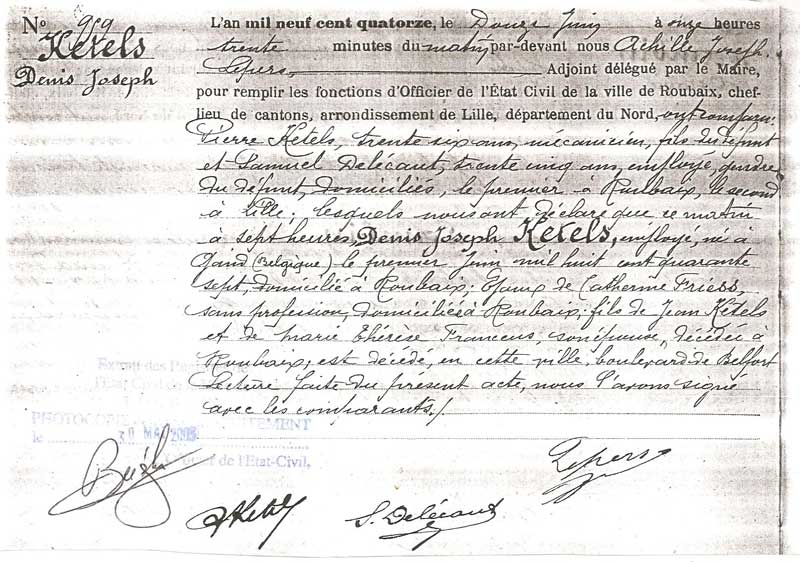 No 989
Ketels
Denis Joseph
L'an mil neuf cent quatorze, le Douze Juin à onze heures
trente minutes du matin, par-devant nous Achille Joseph
Lepers, Adjoint délégué par le Maire,
pour remplir les fonctions d'Officier de l'État Civil de la ville de Roubaix, chef-
lieu de cantons, arrondissement de Lille, département du Nord, ont comparu:
Pierre Ketels, trente six ans, mécanicien, fils du défunt
et Samuel Delécaut, trente cinq ans, employé, gendre
du défunt, domiciliés, le premier à Roubaix, le second
à Lille; lesquels nous ont déclaré que ce matin
à sept heures, Denis Joseph Ketels, employé, né à
Gand (Belgique) le premier Juin mil huit cent quarante
sept, domicilié à Roubaix; Epoux de Catherine Friess,
sans profession, domiciliée à Roubaix; fils de Jean Ketels
et de Marie Thérèse Francous, son épouse, décédée à
Roubaix, est décédé, en cette ville, boulevard de Belfort
Lecture faite du présent acte, nous l'avons signé
avec les comparants./.
Extrait des
l'État Civil de
PHOTOCOPIE
le 30 MAI
de l'Etat-Civil,
Lepers
PKetels
S. Delécaut